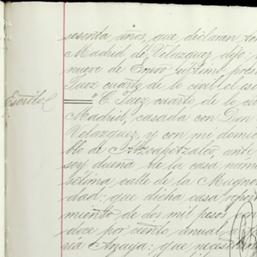 sesenta años, que declaran
Madrid de Velazquez, dijo:
nueve de Enero último
Juez cuarto de lo civil el
Escrito "C. Juez cuarto de lo
Madrid, casada con Don
Velazquez, y con mi domi
de Atzcapotzalco, ante
soy dueña de la casa núm
sétima calle de la
dad: que dicha casa
miento de dos mil pesos
doce por ciento anual
ria Anaya: que